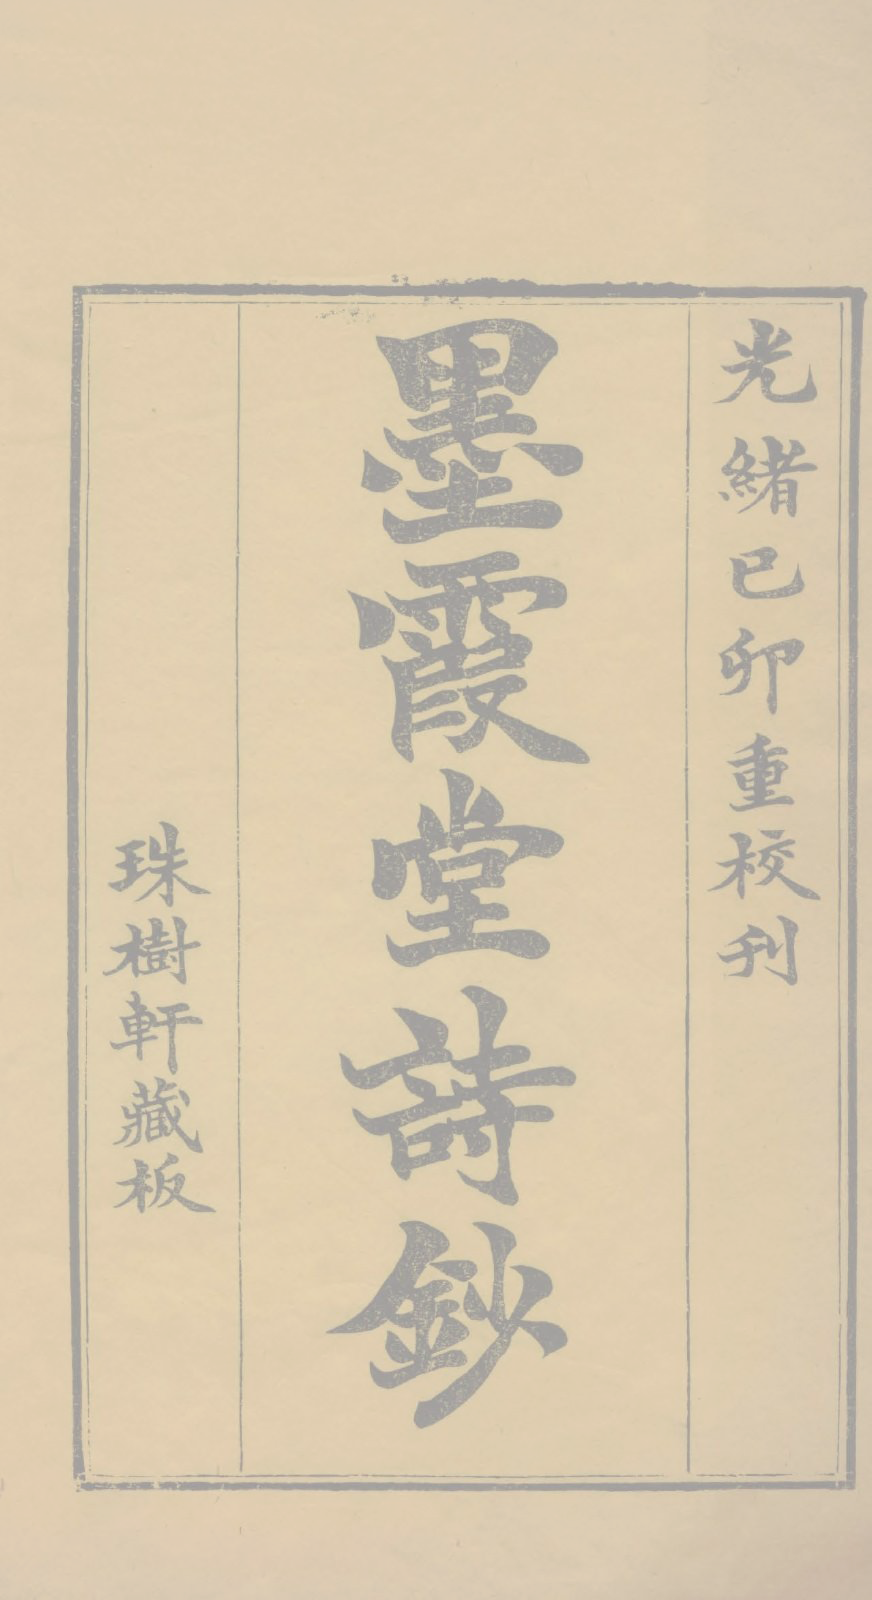 光緒己卯重校刊
墨霞堂詩鈔
珠樹軒藏板